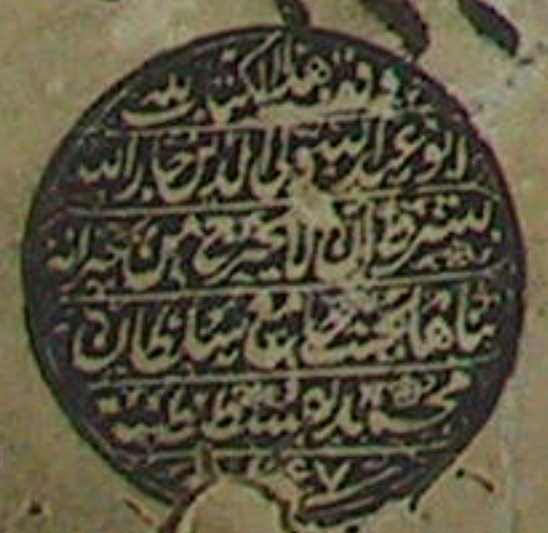 وقف هذا الكتاب لله
ابو عبد الله ولي الدين جار الله
بشرط ان لا يخرج من خزانة
بناها بجنب جامع سلطان
محمد بقسطنطينية